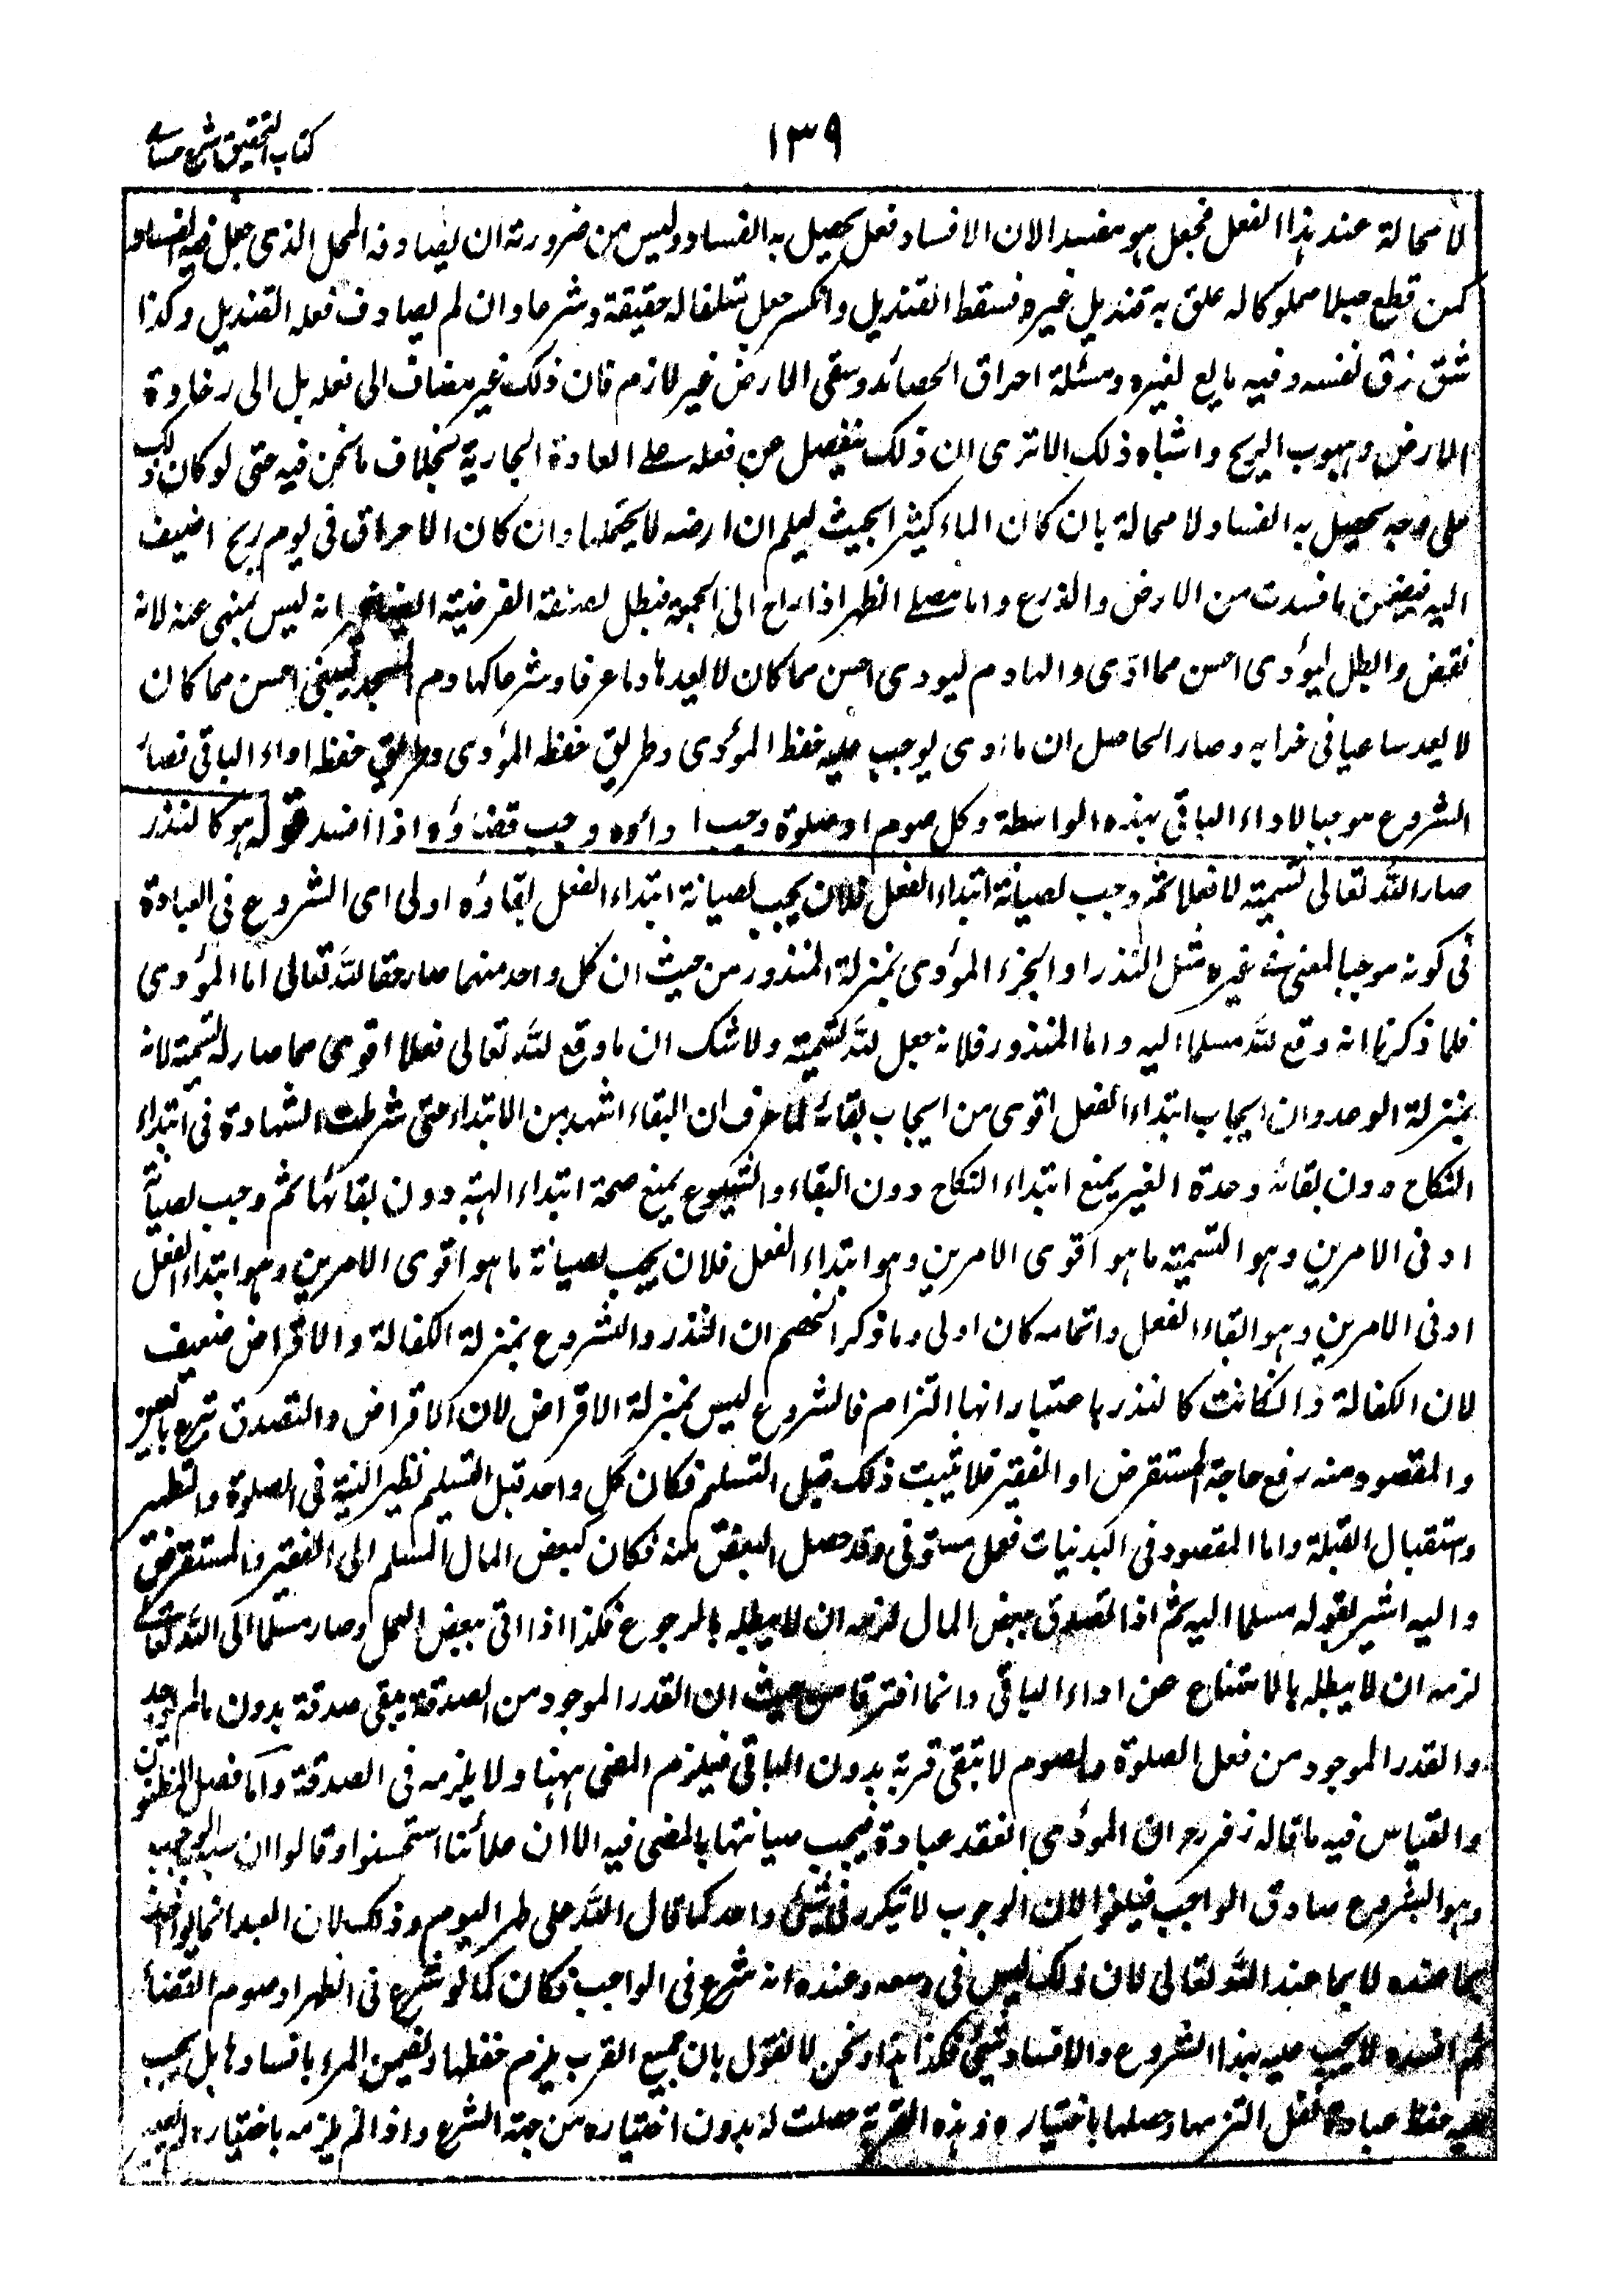 ١٣٩
كتاب التحقيق شرح حسامى
لا محالة عند هذا الفعل فجعل هو مفسدا لان الافساد فعل يحصل به الفساد وليس من ضرورته ان يصادف المحل الذى جعل فيه الفساد
كمن قطع حبلا مملوكا له علق به قنديل غيره فسقط القنديل وانكسر جعل متلفا له حقيقة وشرعا وان لم يصادف فعله القنديل وكذا
شق زق نفسه وفيه مايع لغيره ومسئلة احراق الحصائد وسقى الارض غير لازم فان ذلك غير مضاف الى فعله بل الى رخاوة
الارض وهبوب الريح واشباه ذلك الا ترى ان ذلك ينفصل عن فعله على العادة الجارية بخلاف ما نحن فيه حتى لو كان ذلك
على وجه يحصل به الفساد لا محالة بان كان الماء كثيرا بحيث يعلم ان ارضه لا يحتملها وان كان الاحراق فى يوم ريح اضيف
اليه فيضمن ما فسدت من الارض والزرع واما مصلى الظهر اذا راح الى الجمعة فبطل لصفة الفرضية انه ليس بمنهى عنه لانه
نقض وابطل ليؤدى احسن مما ادى والهادم ليودى احسن مما كان لا يعد هادما عرفا وشرعا كهادم المسجد ليبنى احسن مما كان
لا يعد ساعيا فى خرابه وصار الحاصل ان ما ادى يوجب عليه حفظ المؤدى وطريق حفظه المؤدى وطريق حفظه اداء الباقى فصار
الشروع موجبا لاداء الباقى بهذه الواسطة وكل صوم او صلوة وجب اداؤه وجب قضاؤه اذا افسد قوله هو كالنذر
صار الله تعالى تسمية لا فعلا ثم وجب لصيانة ابتداء الفعل فلان يجب لصيانة ابتداء الفعل بقاؤه اولى اى الشروع فى العبادة
فى كونه موجبا لمعنى فى غيره مثل النذر او الجزء المؤدى بمنزلة المنذور من حيث ان كل واحد منهما صار حقا لله تعالى اما المؤدى
فلما ذكرنا انه وقع لله مسلما اليه واما المنذور فلانه جعل لله تسمية ولا شك ان ما وقع لله تعالى فعلا اقوى مما صار له تسمية لانه
بمنزلة الوعد وان ايجاب ابتداء الفعل اقوى من ايجاب بقائه لما عرف ان البقاء اسهل من الابتداء حتى شرطت الشهادة فى ابتداء
النكاح دون بقائه وعدة الغير يمنع ابتداء النكاح دون البقاء والشيوع يمنع صحة ابتداء الهبة دون بقائها ثم وجب لصيانة
ادنى الامرين وهو التسمية ما هو اقوى الامرين وهو ابتداء الفعل فلان يجب لصيانة ما هو اقوى الامرين وهو ابتداء الفعل
ادنى الامرين وهو ابقاء الفعل واتمامه كان اولى وما ذكر الخصم ان النذر والشروع بمنزلة الكفالة والاقراض ضعيف
لان الكفالة وان كانت كالنذر باعتبار انها التزام فالشروع ليس بمنزلة الاقراض لان الاقراض والتصدق تبرع بالعين
والمقصود منه رفع حاجة المستقرض او الفقير فلا يثبت ذلك قبل التسليم فكان كل واحد قبل التسليم نظير النية فى الصلوة والتطهر
واستقبال القبلة واما المقصود فى البدنيات فعمل مستوفى وقد حصل البعض منه فكان كبعض المال المسلم الى الفقير والمستقرض
واليه اشير بقوله مسلما اليه ثم اذا تصدق ببعض المال لزمه ان لا يبطله بالرجوع فكذا اذا اتى ببعض العمل وصار مسلما الى الله تعالى
لزمه ان لا يبطله بالامتناع عن اداء الباقى وانما افترقا من حيث ان القدر الموجود من الصدقة يبقى صدقة بدون ما لم يوجد
والقدر الموجود من فعل الصلوة والصوم لا تبقى قربة بدون الباقى فيلزم المضى ههنا ولا يلزمه فى الصدقة واما فصل المظنون
والقياس فيه ما قاله زفر رح ان المؤدى انعقد عبادة فيجب صيانتها بالمضى فيه الا ان علمائنا استحسنوا وقالوا ان سبب الوجوب
وهو الشروع صادق الواجب فيلغوا لان الوجوب لا يتكرر فى شئ واحد كما قال الله على ظهر اليوم وذلك لان العبد انما يؤاخذ
بما عنده لا بما عند الله تعالى لان ذلك ليس فى وسعه وعنده انه شرع فى الواجب فكان كما لو شرع فى الظهر او صوم القضاء
ثم افسده لا يجب عليه بهذا الشروع والافساد شئ فكذا هذا ونحن لا نقول بان جميع القرب يلزم حفظها ويضمن المرء بافسادها بل يجب
عليه حفظ عبادة نفل التزمها وحصلها باختياره وهذه القربة حصلت له بدون اختياره من جهة الشرع واذا لم يلزمه باختياره